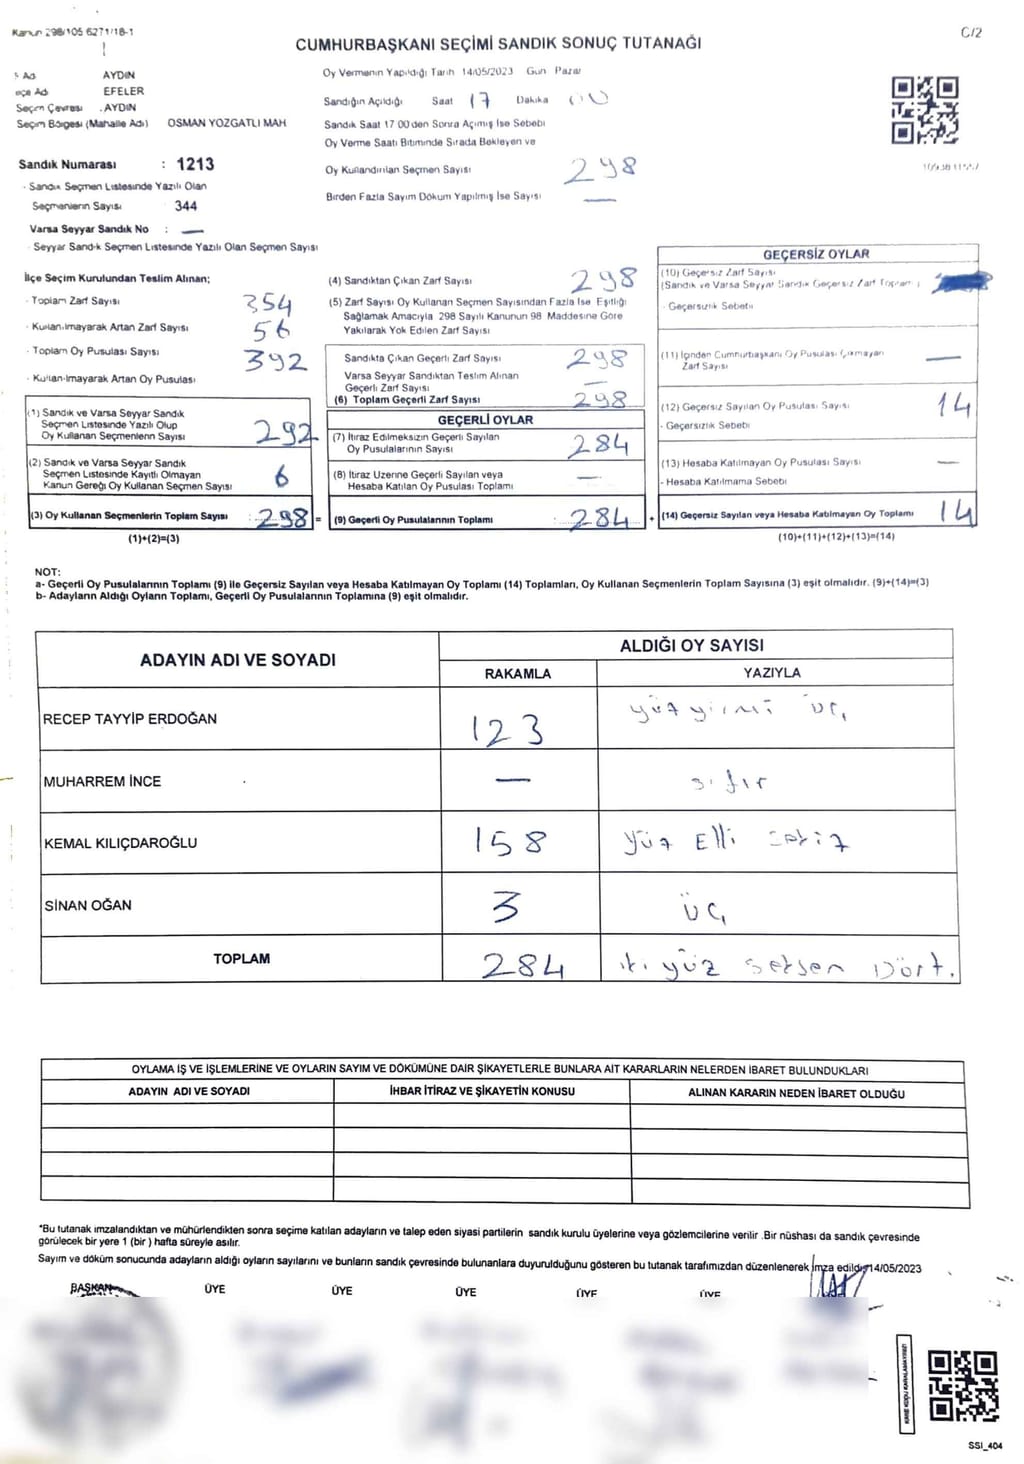 Kanun 298/105 6271/18-1
C/2
CUMHURBAŞKANI SEÇİMİ SANDIK SONUÇ TUTANAĞI
Adı AYDIN
Adı EFELER
Seçim Çevresi AYDIN
Seçim Bölgesi (Mahalle Adı) OSMAN YOZGATLI MAH
Sandık Numarası : 1213
- Sandık Seçmen Listesinde Yazılı Olan
Seçmenlerin Sayısı 344
Varsa Seyyar Sandık No : —
- Seyyar Sandık Seçmen Listesinde Yazılı Olan Seçmen Sayısı
Oy Vermenin Yapıldığı Tarih 14/05/2023 Gün Pazar
Sandığın Açıldığı Saat 17 Dakika 00
Sandık Saat 17 00 den Sonra Açılmış İse Sebebi
Oy Verme Saati Bitiminde Sırada Bekleyen ve
Oy Kullandırılan Seçmen Sayısı 298
Birden Fazla Sayım Döküm Yapılmış İse Sayısı —
İlçe Seçim Kurulundan Teslim Alınan;
- Toplam Zarf Sayısı 354
- Kullanılmayarak Artan Zarf Sayısı 56
- Toplam Oy Pusulası Sayısı 392
- Kullanılmayarak Artan Oy Pusulası
(1) Sandık ve Varsa Seyyar Sandık
Seçmen Listesinde Yazılı Olup
Oy Kullanan Seçmenlerin Sayısı 292
(2) Sandık ve Varsa Seyyar Sandık
Seçmen Listesinde Kayıtlı Olmayan
Kanun Gereği Oy Kullanan Seçmen Sayısı 6
(3) Oy Kullanan Seçmenlerin Toplam Sayısı : 298 =
(1)+(2)=(3)
(4) Sandıktan Çıkan Zarf Sayısı 298
(5) Zarf Sayısı Oy Kullanan Seçmen Sayısından Fazla İse Eşitliği
Sağlamak Amacıyla 298 Sayılı Kanunun 98 Maddesine Göre
Yakılarak Yok Edilen Zarf Sayısı
Sandıkta Çıkan Geçerli Zarf Sayısı 298
Varsa Seyyar Sandıktan Teslim Alınan
Geçerli Zarf Sayısı —
(6) Toplam Geçerli Zarf Sayısı 298
GEÇERLİ OYLAR
(7) İtiraz Edilmeksizin Geçerli Sayılan
Oy Pusulalarının Sayısı 284
(8) İtiraz Üzerine Geçerli Sayılan veya
Hesaba Katılan Oy Pusulası Toplamı —
(9) Geçerli Oy Pusulalarının Toplamı : 284 +
GEÇERSİZ OYLAR
(10) Geçersiz Zarf Sayısı
(Sandık ve Varsa Seyyar Sandık Geçersiz Zarf Toplamı)
- Geçersizlik Sebebi
(11) İçinden Cumhurbaşkanı Oy Pusulası Çıkmayan
Zarf Sayısı —
(12) Geçersiz Sayılan Oy Pusulası Sayısı 14
- Geçersizlik Sebebi
(13) Hesaba Katılmayan Oy Pusulası Sayısı —
- Hesaba Katılmama Sebebi
(14) Geçersiz Sayılan veya Hesaba Katılmayan Oy Toplamı 14
(10)+(11)+(12)+(13)=(14)
NOT:
a- Geçerli Oy Pusulalarının Toplamı (9) ile Geçersiz Sayılan veya Hesaba Katılmayan Oy Toplamı (14) Toplamları, Oy Kullanan Seçmenlerin Toplam Sayısına (3) eşit olmalıdır. (9)+(14)=(3)
b- Adayların Aldığı Oyların Toplamı, Geçerli Oy Pusulalarının Toplamına (9) eşit olmalıdır.
ADAYIN ADI VE SOYADI ALDIĞI OY SAYISI
RAKAMLA YAZIYLA
RECEP TAYYİP ERDOĞAN 123 yüz yirmi üç
MUHARREM İNCE — sıfır
KEMAL KILIÇDAROĞLU 158 Yüz Elli sekiz
SİNAN OĞAN 3 üç
TOPLAM 284 iki yüz seksen Dört.
OYLAMA İŞ VE İŞLEMLERİNE VE OYLARIN SAYIM VE DÖKÜMÜNE DAİR ŞİKAYETLERLE BUNLARA AİT KARARLARIN NELERDEN İBARET BULUNDUKLARI
ADAYIN ADI VE SOYADI İHBAR İTİRAZ VE ŞİKAYETİN KONUSU ALINAN KARARIN NEDEN İBARET OLDUĞU
*Bu tutanak imzalandıktan ve mühürlendikten sonra seçime katılan adayların ve talep eden siyasi partilerin sandık kurulu üyelerine veya gözlemcilerine verilir .Bir nüshası da sandık çevresinde
görülecek bir yere 1 (bir ) hafta süreyle asılır.
Sayım ve döküm sonucunda adayların aldığı oyların sayılarını ve bunların sandık çevresinde bulunanlara duyurulduğunu gösteren bu tutanak tarafımızdan düzenlenerek imza edildi. 14/05/2023
BAŞKAN ÜYE ÜYE ÜYE ÜYE ÜYE
KARE KODU KARALAMAYINIZ!
SSI_404